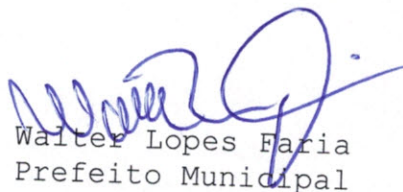 Walter Lopes Faria
Prefeito Municipal